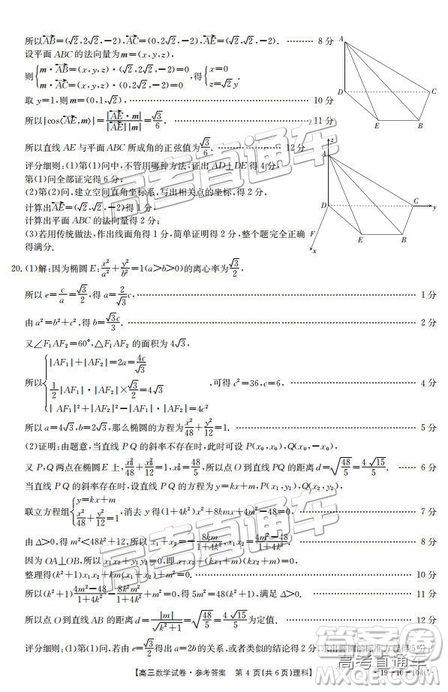 所以AB=(√2,√2,-2),AC=(0,2√2,-2),AE=(√2,√2,-2). 8分
设平面ABC的法向量为m=(x,y,z),
则{m·AB=(x,y,z)·(√2,√2,-2)=0 m·AC=(x,y,z)·(0,2√2,-2)=0,得{x=0 z=√2y.
取y=1,则m=(0,1,√2) 10分
所以|cos⟨AE,m⟩|=|AE·m|/|AE||m|=√3/6. 11分
所以直线AE与平面ABC所成角的正弦值为√3/6. 12分
评分细则:(1)第(1)问中,不管用哪种方法,证出AD⊥DE得4分,
第(1)问全部证完得6分;
(2)第(2)问,建立空间直角坐标系,写出相关点的坐标,得2分,
计算出,-2)得1分,
计算出平面ABC的法向量得2分;
(3)若用传统做法,作出线面角得2分,简单证明得2分,全部计算完且正确
得满分.
A
D
C
E
B
A
D
C
y
E
B
x
20.(1)解:因为椭圆E:x²/a²+y²/b²=1(a>b>0)的离心率为√3/2,
所以e=c/a=√3/2,得a=2c/√3. 1分
由a²=b²+c²,得b=c/√3. 2分
又∠F₁AF₂=60°,△F₁AF₂的面积为4√3,
所以{|AF₁|+|AF₂|=2a=4c/√3 1/2|AF₁|·|AF₂|×√3/2=4√3 |AF₁|²+|AF₂|²-|AF₁|·|AF₂|=4c²,可得c²=36,c=6, 4分
所以a=4√3,b=2√3,那么椭圆的方程为x²/48+y²/12=1. 5分
(2)证明:由题意,当直线PQ的斜率不存在时,此时可设P(x₀,x₀),Q(x₀,-x₀).
又P,Q两点在椭圆E上,x₀²/48+x₀²/12=1,x₀²=48/5,所以点O到直线PQ的距离d=√(48/5)=4√15/5. 6分
当直线PQ的斜率存在时,设直线PQ的方程为y=kx+m,设P(x₁,y₁),Q(x₂,y₂).
联立方程组{y=kx+m x²/48+y²/12=1,可得(1+4k²)x²+8kmx+4m²-48=0. 7分
由Δ>0,得m²<48k²+12,所以x₁+x₂=-8km/(1+4k²),x₁x₂=(4m²-48)/(1+4k²). 8分
因为OA⊥OB,所以x₁x₂+y₁y₂=0,即x₁x₂+(kx₁+m)(kx₂+m)=0,
整理得(k²+1)x₁x₂+km(x₁+x₂)+m²=0. 10分
所以(k²+1)(4m²-48)/(1+4k²)
11分
所以点O到直线PQ的距离d=|m|/√(k²+1)=√(48/5)=4√15/5为定值. 12分
【高三数学试卷·参考答案 第4页(共6页)理科】
高考直通车
高考直通车
高考直通车